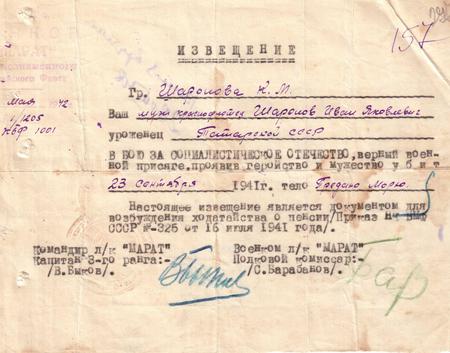 ЛИНКОР
"МАРАТ"
Краснознаменного
Балтийского Флота
157
Мая 1942
1/1205
КБФ 1001
ИЗВЕЩЕНИЕ
Гр. Шаропова К. М.
Ваш муж краснофлотец Шаропов Иван Яковлевич
уроженец Татарской СССР
В БОЮ ЗА СОЦИАЛИСТИЧЕСКОЕ ОТЕЧЕСТВО, верный воен-
ной присяге, проявив геройство и мужество у б и т
23 Сентября 1941г. тело Предано Морю.
Настоящее извещение является документом для
возбуждения ходатайства о пенсии/Приказ Н
СССР №-325 от 16 июля 1941 года/.
Командир л/к "МАРАТ" Военком л/к "МАРАТ"
Капитан 3-го ранга:- Полковой комиссар:-
/В.Быков/. /С.Барабанов/.